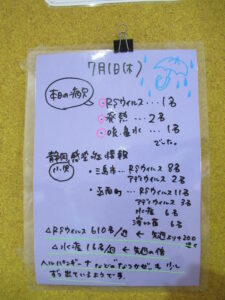 7月1日(木)
本日の病児
○RSウイルス…1名
○発熱…2名
○咽鼻水…1名
でした。
静岡感染症情報
・三島市…RSウイルス 8名
アデノウイルス 2名
RSウイルス 11名
アデノウイルス 3名
水痘 6名
6名
△RSウイルス 610名/週 ←先週より+200
△水痘 16名/週 ←先週の倍
ヘルパンギーナなどの"なつかぜ"も少し
ずつ出ているようです。